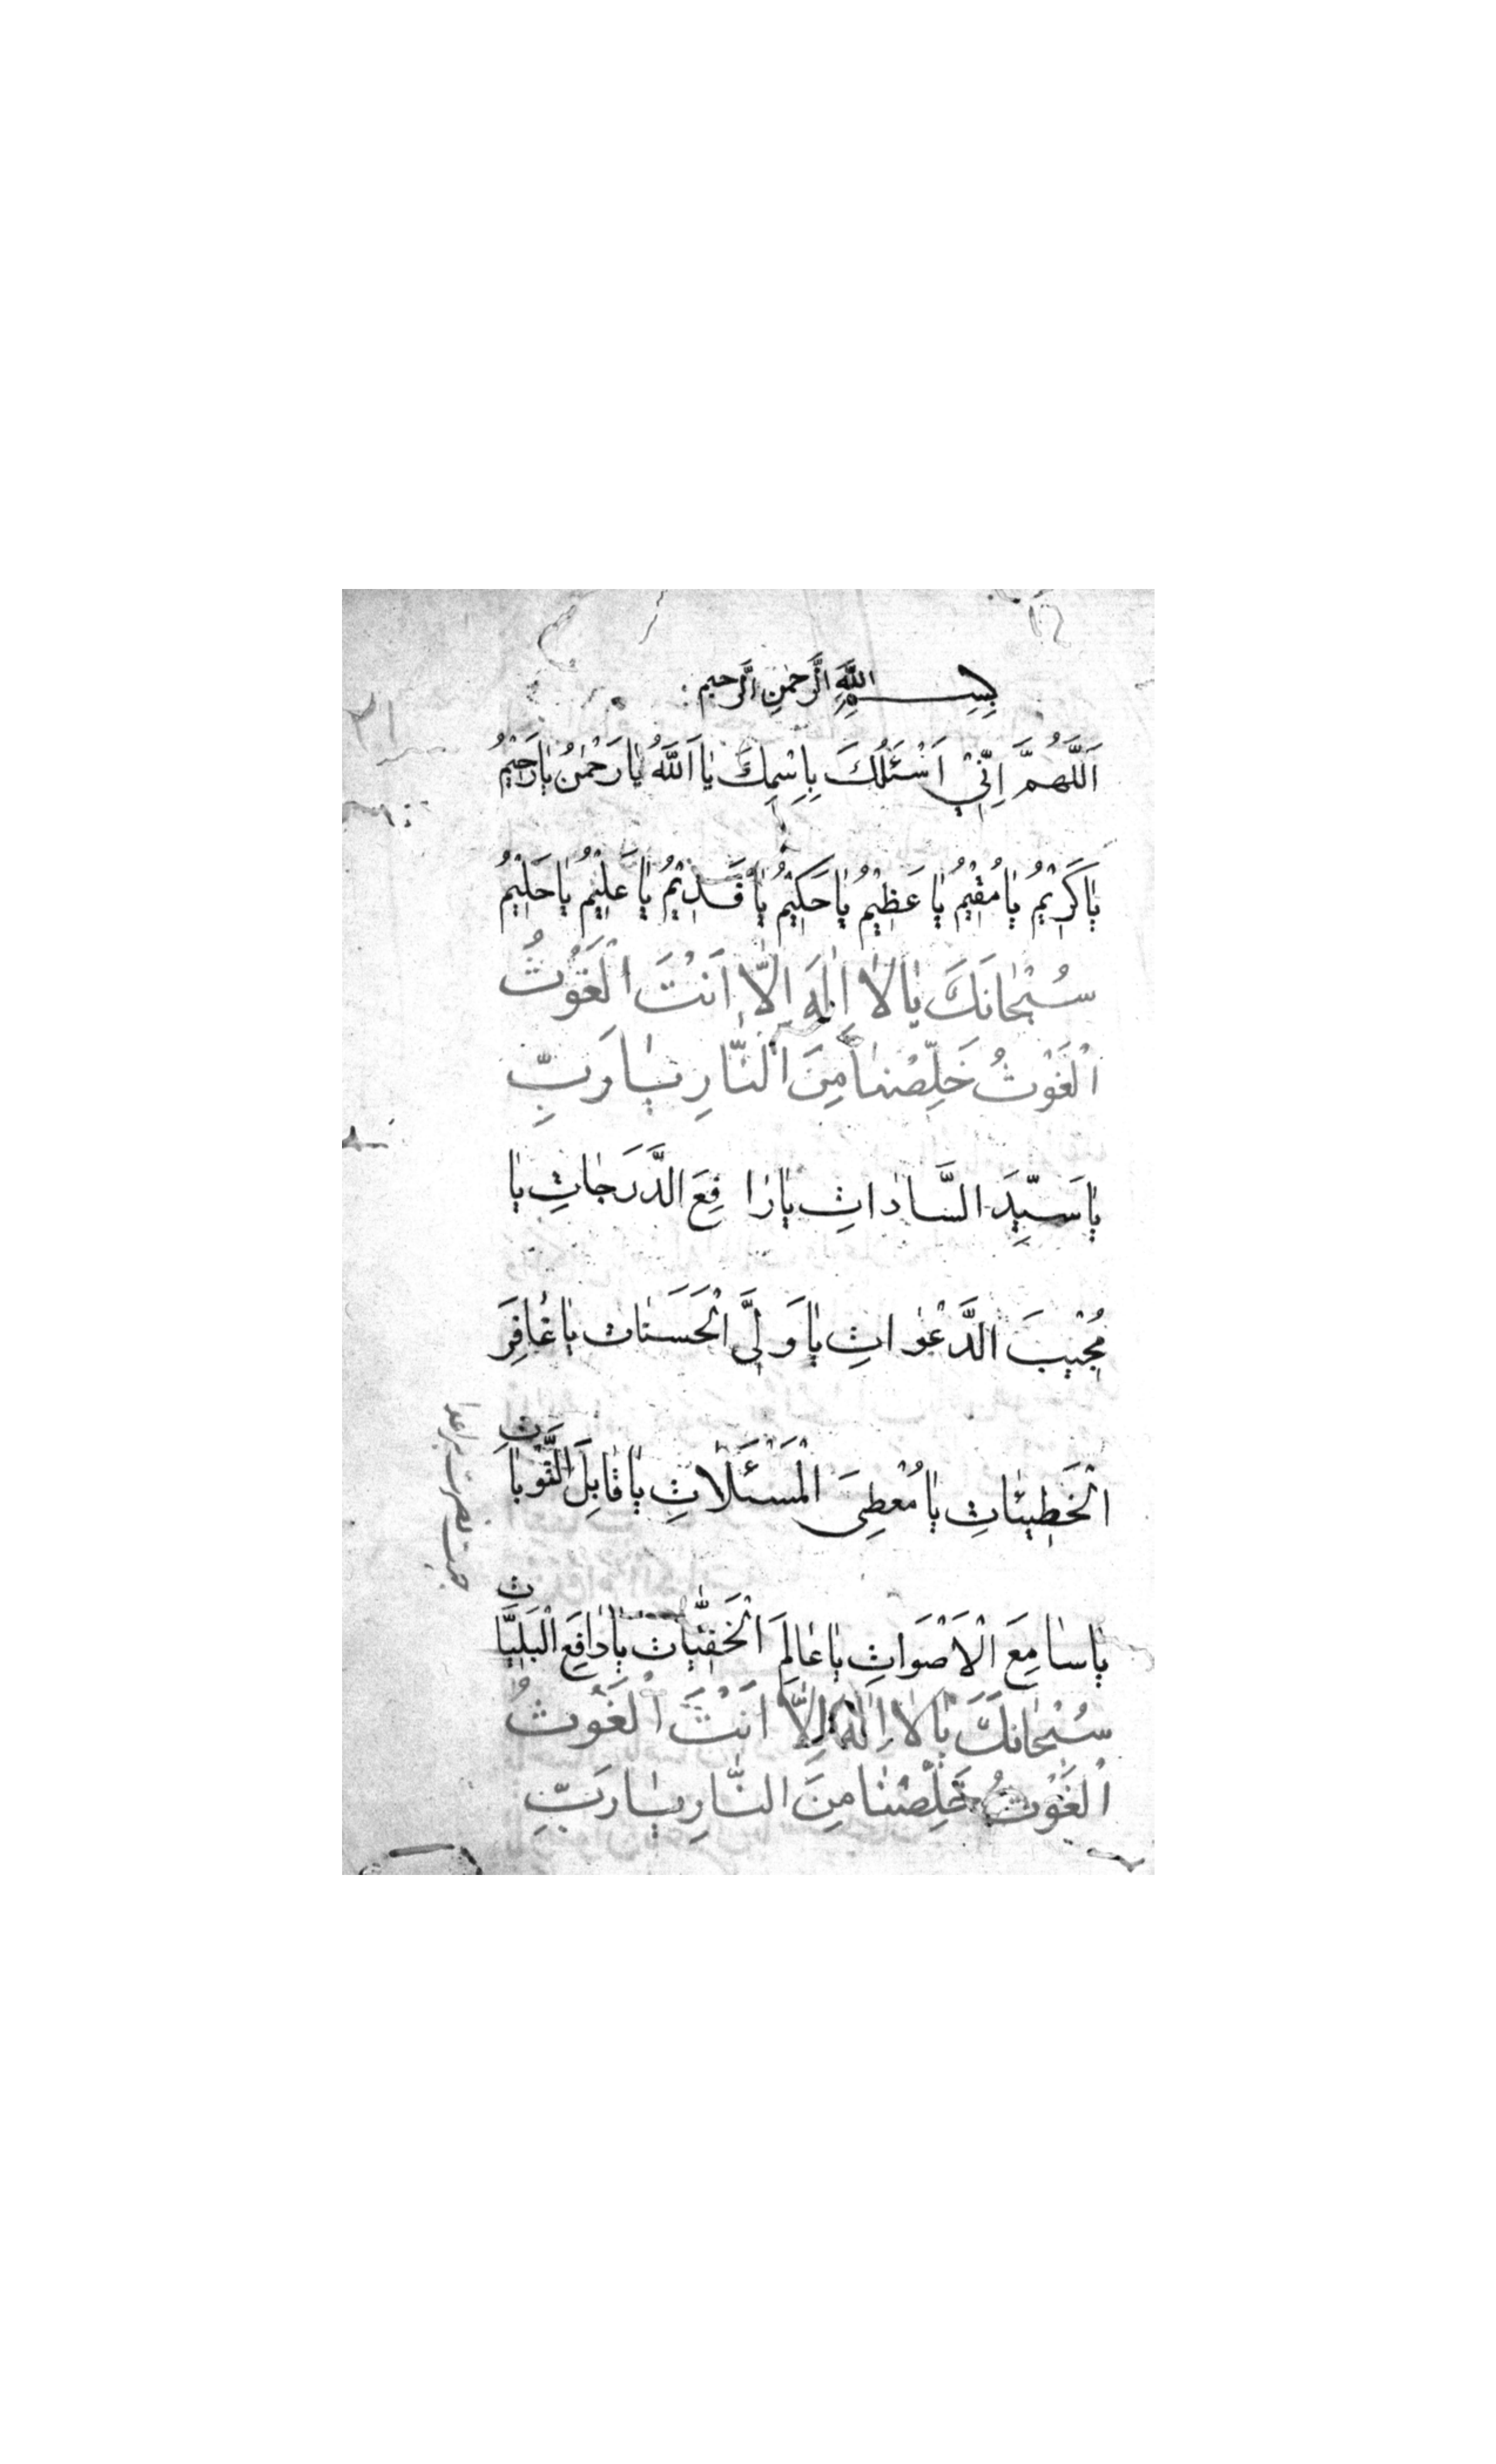 بِسْمِ اللَّهِ الرَّحْمٰنِ الرَّحیم
اَللَّهُمَّ اِنّیْ اَسْئَلُكَ بِاِسْمِكَ یٰا اَللَّهُ یٰا رَحْمٰنُ یٰا رَحیْمُ
یٰا كَریْمُ یٰا مُقیْمُ یٰا عَظیْمُ یٰا حَكیْمُ یٰا قَدیْمُ یٰا عَلیْمُ یٰا حَلیْمُ
سُبْحٰانَكَ یٰا لاٰ اِلٰهَ اِلاّٰ اَنْتَ الْغَوْثُ
الْغَوْثُ خَلِّصْنٰا مِنَ النّٰارِ یٰا رَبِّ
یٰا سَیِّدَ السَّادٰاتِ یٰا رٰافِعَ الدَّرَجٰاتِ یٰا
مُجْیبَ الدَّعْوٰاتِ یٰا وَلِیَّ الْحَسَنٰات یٰا غٰافِرَ
الْخَطیئٰاتِ یٰا مُعْطِیَ الْمَسْئَلاٰتِ یٰا قٰابِلَ التَّوْبٰاتِ
یٰا سٰامِعَ الْاَصْوَاتِ یٰا عٰالِمَ الْخَفیّٰات یٰا دٰافِعَ الْبَلیَّات
سُبْحٰانَكَ یٰا لاٰ اِلٰهَ اِلاّٰ اَنْتَ الْغَوْثُ
الْغَوْثُ خَلِّصْنٰا مِنَ النّٰارِ یٰا رَبِّ
جهت نصرت بر اعدا